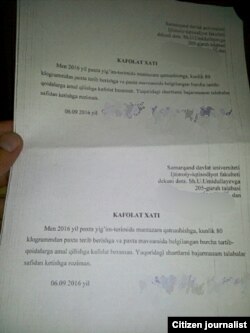 Samarqand davlat universiteti
Ijtimoiy-iqtisodiyot fakulteti
dekani dots. Sh.U.Umidullayevga
205-guruh talabasi
dan
KAFOLAT XATI
Men 2016 yil paxta yig'im-terimida muntazam qatnashishga, kunlik 80
kilogrammdan paxta terib berishga va paxta mavsumida belgilangan barcha tartib-
qoidalarga amal qilishga kafolat beraman. Yuqoridagi shartlarni bajarmasam talabalar
safidan ketishga roziman.
06.09 2016 yil
Samarqand davlat universiteti
Ijtimoiy-iqtisodiyot fakulteti
dekani dots. Sh.U.Umidullayevga
205-guruh talabasi
dan
KAFOLAT XATI
Men 2016 yil paxta yig'im-terimida muntazam qatnashishga, kunlik 80
kilogrammdan paxta terib berishga va paxta mavsumida belgilangan barcha tartib-
qoidalarga amal qilishga kafolat beraman. Yuqoridagi shartlarni bajarmasam talabalar
safidan ketishga roziman.
06.09 2016 yil
Citizen journalist